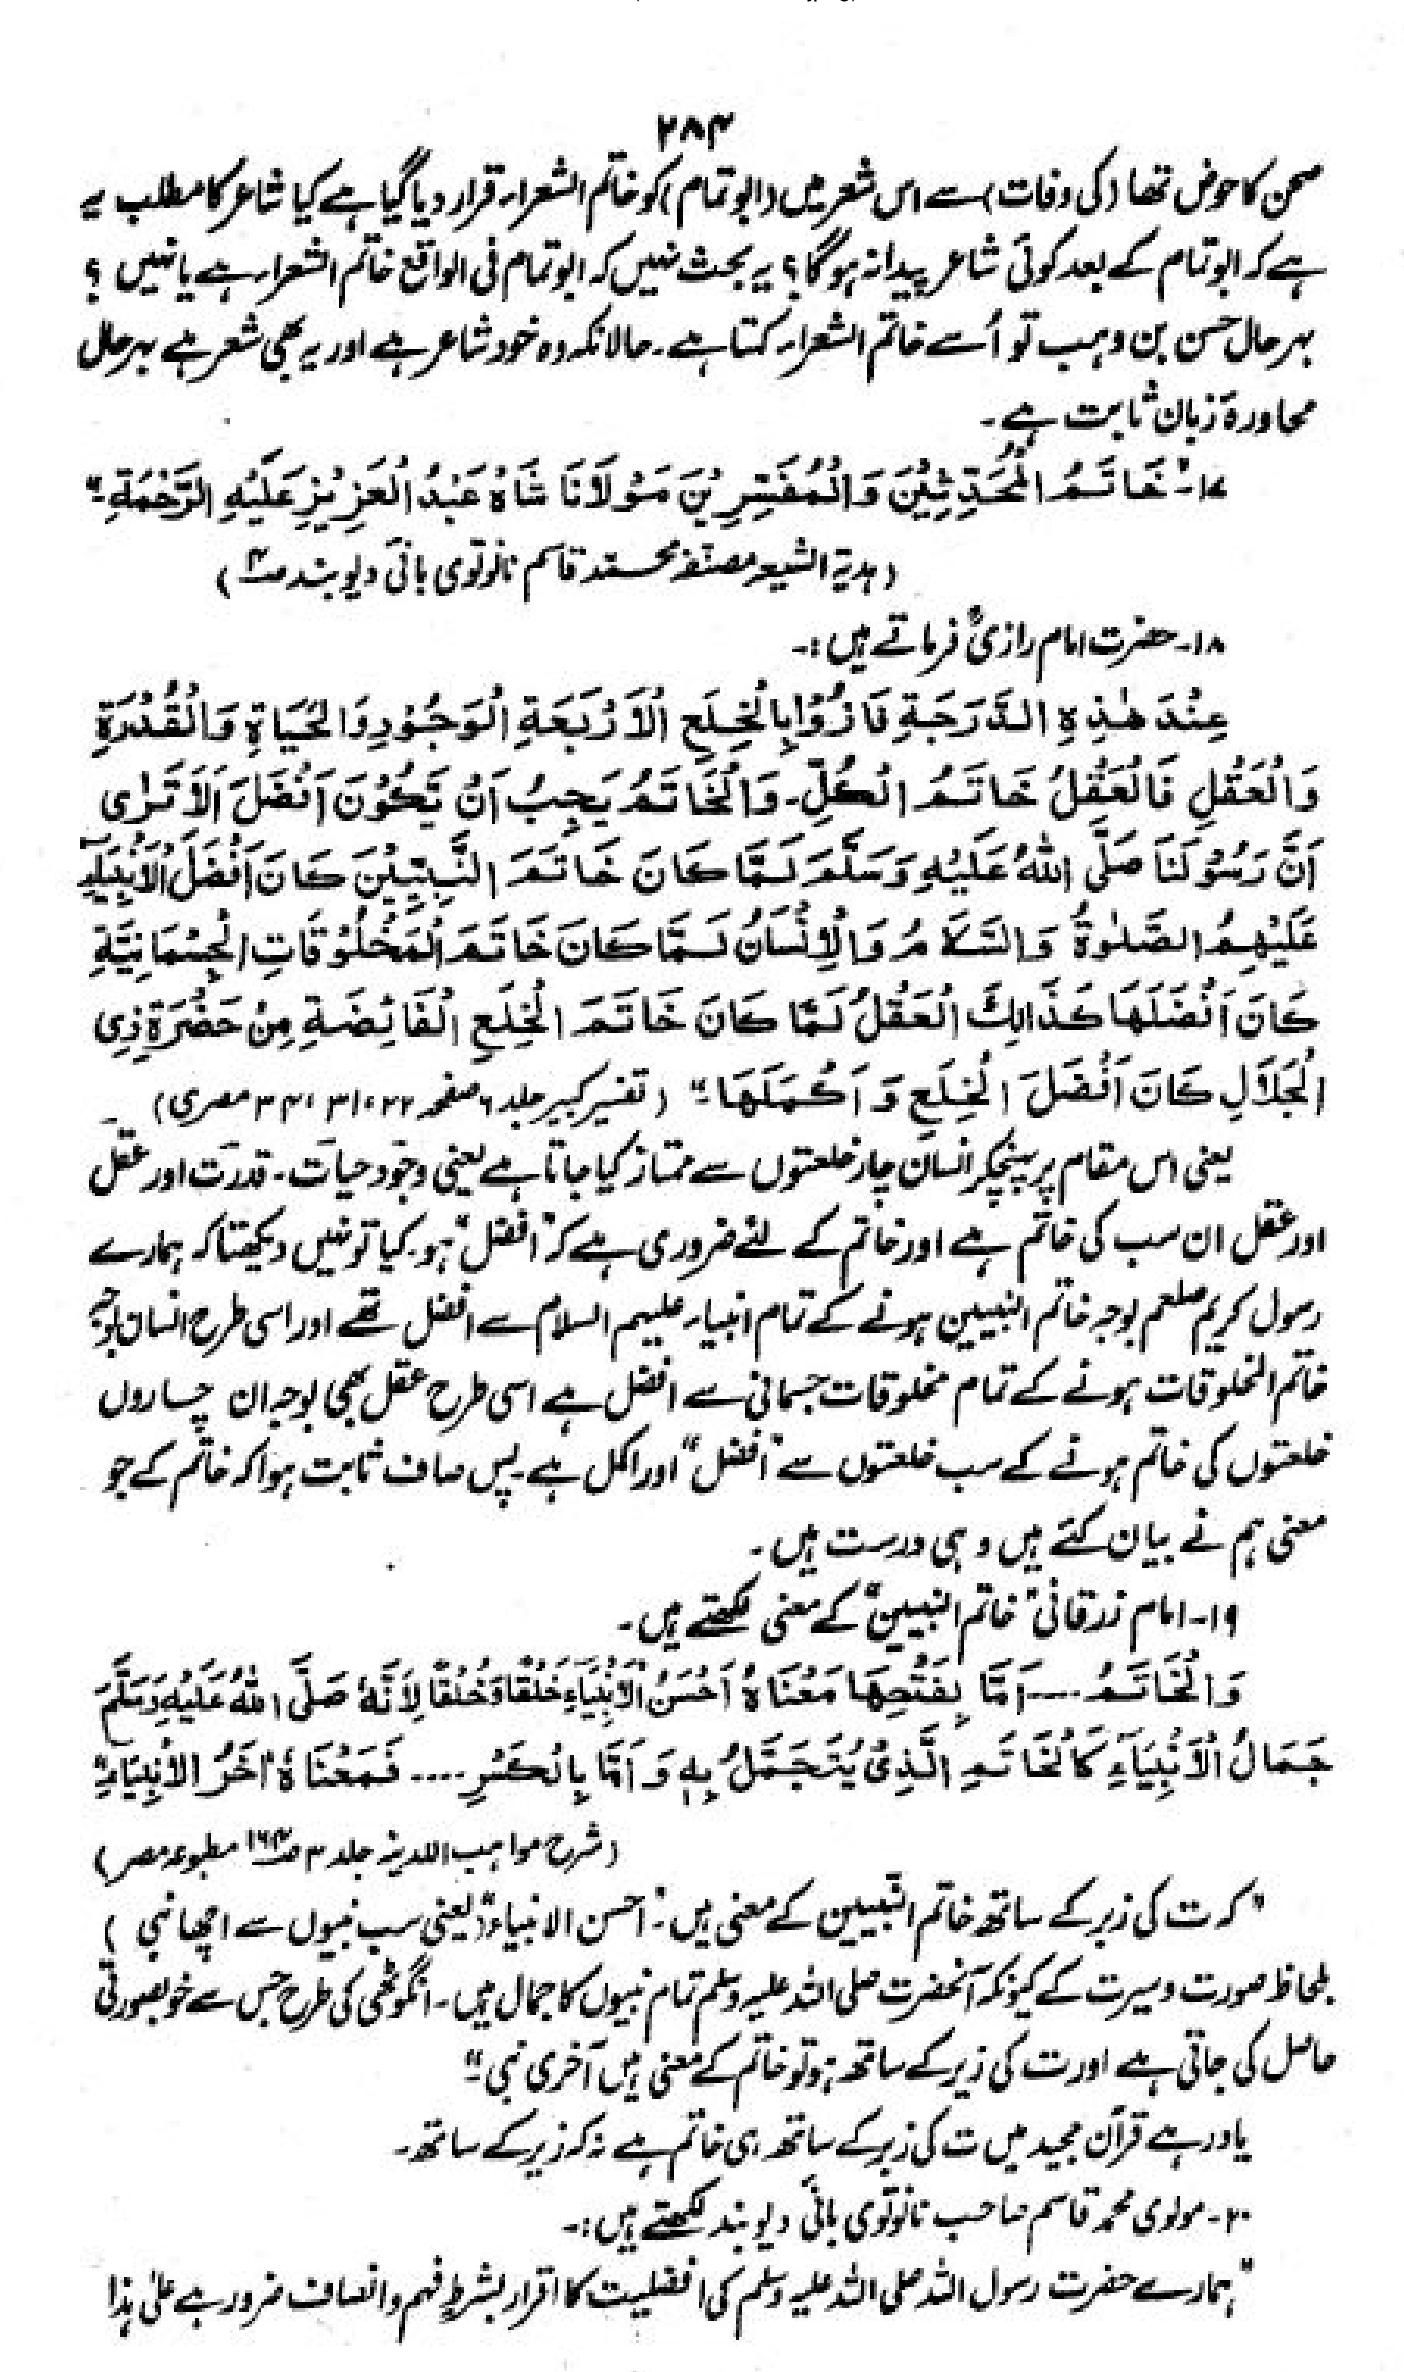 ۲۸۴
صحن کا حوض تھا (کی وفات) سے اس شعر میں (ابو تمام) کو خاتم الشعراء قرار دیا گیا ہے کیا شاعر کا مطلب یہ
ہے کہ ابو تمام کے بعد کوئی شاعر پیدا نہ ہوگا؟ یہ بحث نہیں کہ ابو تمام فی الواقع خاتم الشعراء ہے یا نہیں ؟
بہرحال حسن بن وہب تو اُسے خاتم الشعراء کہتا ہے۔ حالانکہ وہ خود شاعر ہے اور یہ بھی شعر ہے بہرحال
محاورۂ زبان ثابت ہے۔
۱۷۔ "خَاتَمُ الْمُحَدِّثِيْنَ وَالْمُفَسِّرِيْنَ مَوْلَانَا شَاہْ عَبْدُ الْعَزِيْزِ عَلَيْهِ الرَّحْمَةِ۔"
(ہدیۃ الشیعہ مصنفہ محمد قاسم نانوتوی بانیٔ دیوبند صـ۴)
۱۸۔ حضرت امام رازیؒ فرماتے ہیں:۔
عِنْدَ هٰذِهِ الدَّرَجَةِ فَازُوْا بِالْخِلَعِ الْاَرْبَعَةِ الْوَجُوْدِ وَالْحَيَاةِ وَالْقُدْرَةِ
وَالْعَقْلِ فَالْعَقْلُ خَاتَمُ الْكُلِّ۔ وَالْخَاتَمُ يَجِبُ اَنْ يَّكُوْنَ اَفْضَلَ اَلَا تَرٰى
اَنَّ رَسُوْلَنَا صَلَّى اللهُ عَلَيْهِ وَسَلَّمَ لَمَّا كَانَ خَاتَمَ النَّبِيِّيْنَ كَانَ اَفْضَلَ الْاَنْبِيَآءِ
عَلَيْهِمُ الصَّلٰوةُ وَالسَّلَامُ وَالْاِنْسَانُ لَمَّا كَانَ خَاتَمَ الْمَخْلُوْقَاتِ الْجِسْمَانِيَّةِ
كَانَ اَفْضَلَهَا كَذَالِكَ الْعَقْلُ لَمَّا كَانَ خَاتَمَ الْخِلَعِ الْفَائِضَةِ مِنْ حَضْرَةِ ذِى
الْجَلَالِ كَانَ اَفْضَلَ الْخِلَعِ وَ اَكْمَلَهَا۔" (تفسیر کبیر جلد ۶ صفحہ ۲۲، ۳۱، ۳۴ مصری)
یعنی اس مقام پر پہنچکر انسان چار خلعتوں سے ممتاز کیا جاتا ہے یعنی وجود حیات۔ قدرت اور عقل
اور عقل ان سب کی خاتم ہے اور خاتم کے لئے ضروری ہے کہ "افضل" ہو۔ کیا تو نہیں دیکھتا کہ ہمارے
رسول کریم صلعم بوجہ خاتم النبیین ہونے کے تمام انبیاء علیہم السلام سے افضل تھے اور اسی طرح انسان بوجہ
خاتم المخلوقات ہونے کے تمام مخلوقات جسمانی سے افضل ہے اسی طرح عقل بھی بوجہ ان چاروں
خلعتوں کی خاتم ہونے کے سب خلعتوں سے "افضل" اور اکمل ہے۔ پس صاف ثابت ہوا کہ خاتم کے جو
معنی ہم نے بیان کئے ہیں وہی درست ہیں۔
۱۹۔ امام زرقانی "خاتم النبیین" کے معنی لکھتے ہیں۔
وَالْخَاتَمُ .... اَمَّا بِفَتْحِهَا مَعْنَاهُ اَحْسَنُ الْاَنْبِيَآءِ خَلْقًا وَخُلْقًا لِاَنَّهٗ صَلَّى اللهُ عَلَيْهِ وَسَلَّمَ
جَمَالُ الْاَنْبِيَآءِ كَالْخَاتَمِ الَّذِىْ يُتَجَمَّلُ بِهٖ وَ اَمَّا بِالْكَسْرِ .... فَمَعْنَاهُ اٰخَرُ الْاَنْبِيَاءِ"
(شرح مواہب اللدنیہ جلد ۳ صـ۱۶۴ مطبوعہ مصر)
"کہ ت کی زبر کے ساتھ خاتم النبیین کے معنی ہیں۔ "احسن الانبیاء" (یعنی سب نبیوں سے اچھا نبی )
بلحاظ صورت و سیرت کے کیونکہ آنحضرت صلی اللہ علیہ وسلم تمام نبیوں کا جمال ہیں۔ انگوٹھی کی طرح جس سے خوبصورتی
حاصل کی جاتی ہے اور ت کی زیر کے ساتھ ہو تو خاتم کے معنی ہیں آخری نبی۔"
یاد رہے قرآن مجید میں ت کی زبر کے ساتھ ہی خاتم ہے نہ کہ زیر کے ساتھ۔
۲۰۔ مولوی محمد قاسم صاحب نانوتوی بانیٔ دیوبند لکھتے ہیں:۔
"ہمارے حضرت رسول اللہ صلی اللہ علیہ وسلم کی افضلیت کا اقرار بشرطِ فہم و انصاف ضرور ہے علیٰ ہذا